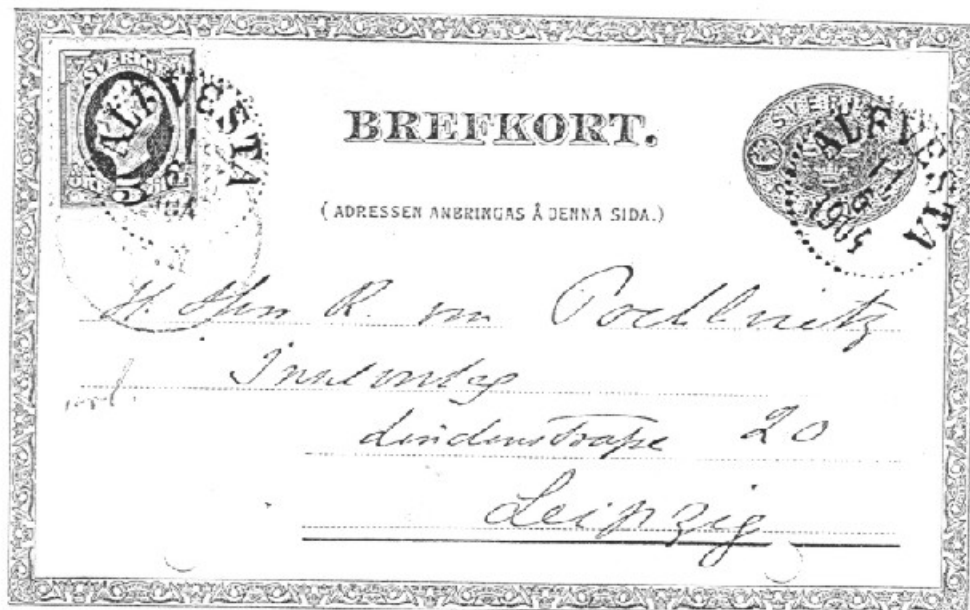 SVERIGE
ALFVESTA
BREFKORT.
SVERIGE
ALFVESTA
(ADRESSEN ANBRINGAS Å DENNA SIDA.)
R. von Poellnitz
Lindenstraße 20
Leipzig